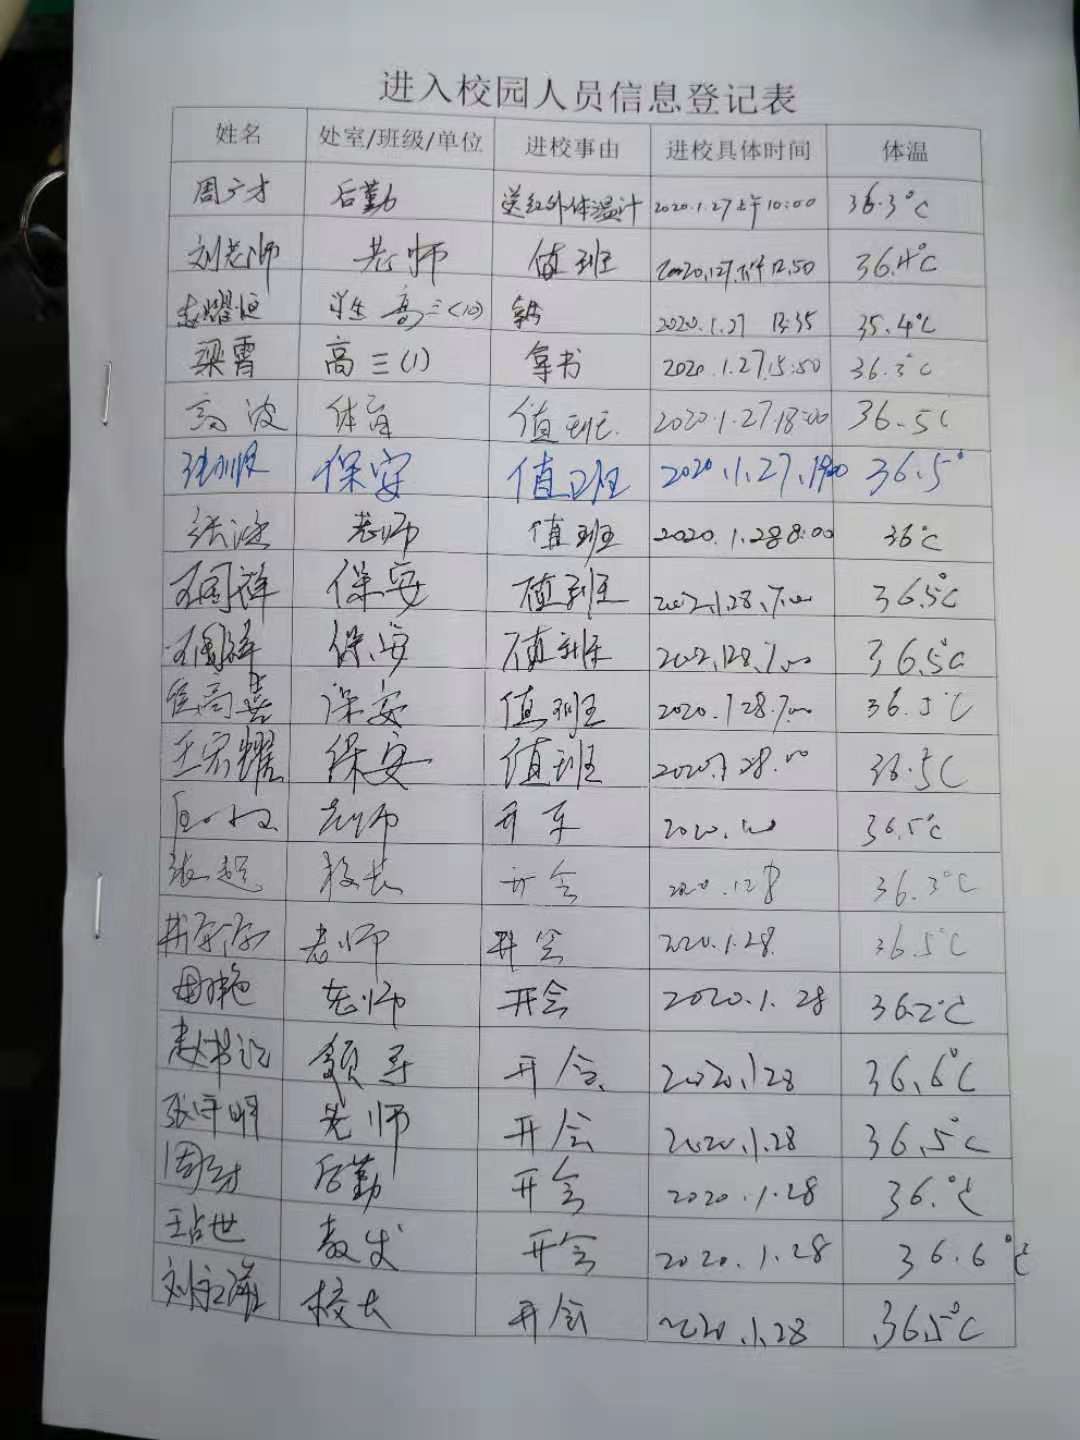 进入校园人员信息登记表
姓名 处室/班级/单位 进校事由 进校具体时间 体温
周广才 后勤 送红外体温计 2020.1.27上午10:00 36.3°C
刘老师 老师 值班 2020.1.27.下午12.50 36.4°C
赵耀恒 学生 高三(10) 2020.1.27 13:35 35.4°C
梁霄 高三(1) 拿书 2020.1.27.15:50 36.3°C
高波 体育 值班. 2020.1.27 18:00 36.5C
保安 值班 2020.1.27. 36.5°
张 老师 值班 2020.1.28 8:00 36°C
保安 值班 36.5°C
保安 值班 36.5C
保安 值班 2020.1 28.7:00 36.5°C
王宏耀 保安 值班 36.5C
老师 开车 36.5°C
张超 校长 开会 2020.128 36.3°C
老师 开会 2020.1.28. 36.5°C
老师 开会 2020.1.28 36.2°C
赵书记 领导 开会 2020.1.28 36.6°C
张守明 老师 开会 2020.1.28 36.5°C
周广才 后勤 开会 2020.1.28 36.°C
王占世 教发 开会 2020.1.28 36.6°C
刘 校长 开会 2020.1.28 36.5°C